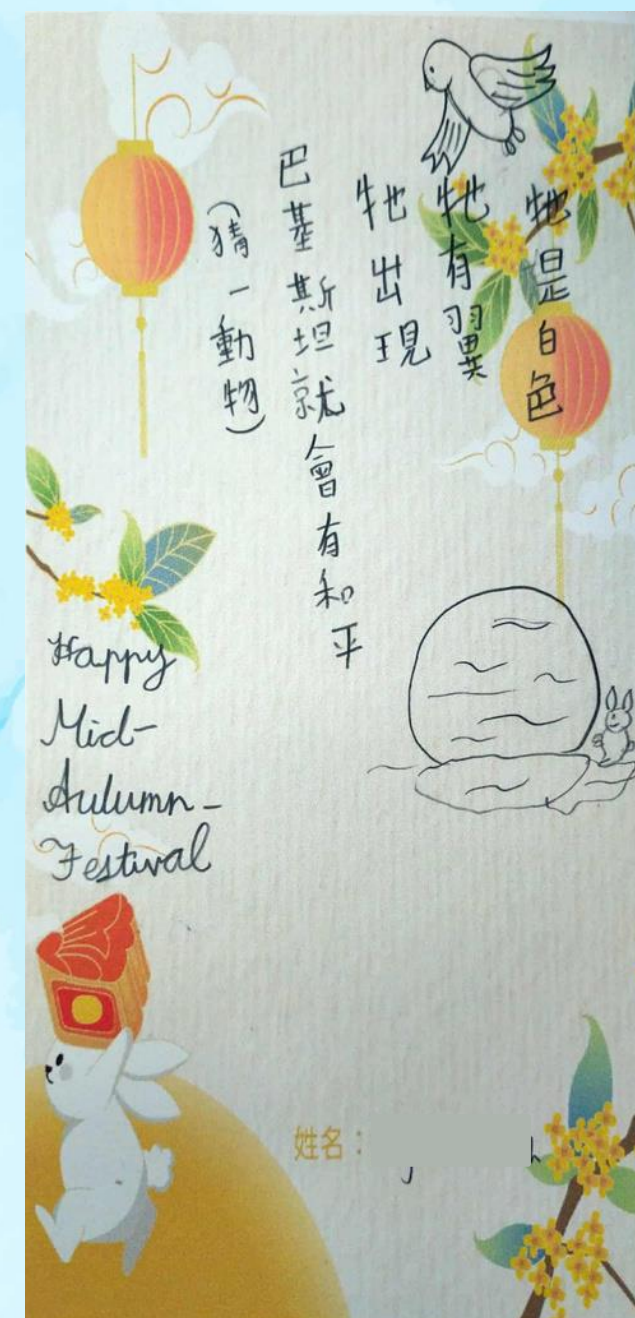 牠是白色
牠有翼
牠出現
巴基斯坦就會有和平
(猜一動物)
Happy
Mid-
Autumn-
Festival
姓名：